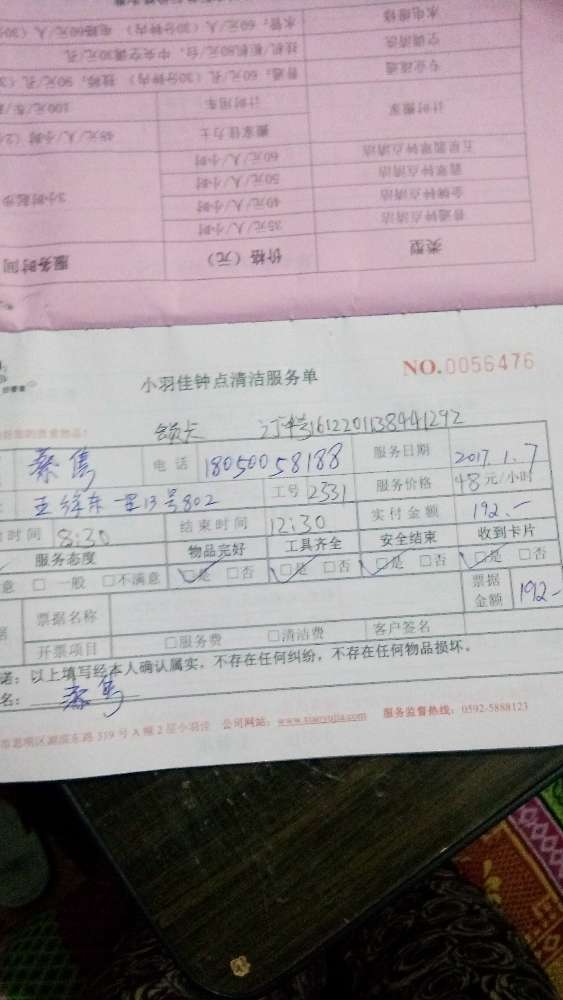 水电维修 水管：60元/人（30分钟内） 电路60元/人（30
空调清洗 挂机 柜机80元/台，中央空调30元/孔
专业疏通 普通：60元/孔（30分钟内） 技疏：90元/孔（3
计时搬家 计时用车 100元/车/
搬家佳力士 45元/人/小时（2
五星翡翠钟点清洁 60元/人/小时
翡翠钟点清洁 50元/人/小时
金牌钟点清洁 40元/人/小时 3小时起步
普通钟点清洁 35元/人/小时
类型 价格（元） 服务时间
小羽佳钟点清洁服务单 NO.0056476
订单号1612201138441292
电话 18050058188 服务日期 2017.1.7
13号802 工号 2331 服务价格 48元/小时
时间 8:30 结束时间 12:30 实付金额 192.-
服务态度 物品完好 工具齐全 安全结束 收到卡片
意 □一般 □不满意 □是 □否 □是 □否 □是 □否 □是 □否
票据名称 票据金额 192-
开票项目 □服务费 □清洁费 客户签名
诺：以上填写经本人确认属实，不存在任何纠纷，不存在任何物品损坏。
名：
市思明区湖滨东路319号A幢2层小羽佳 公司网站：www.xiaoyujia.com 服务监督热线：0592-5888123